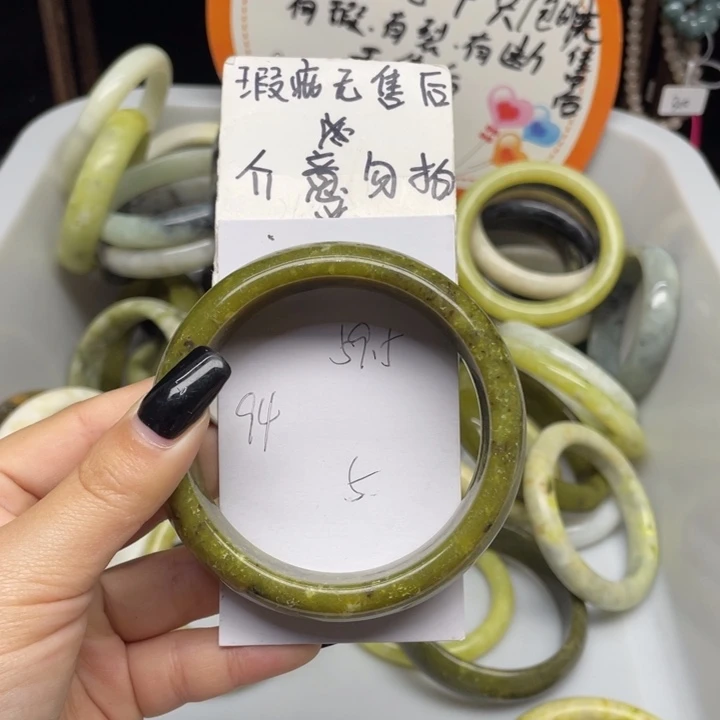 有瑕.有裂.有断
售后
瑕疵无售后
介意勿拍
59.5
94
5